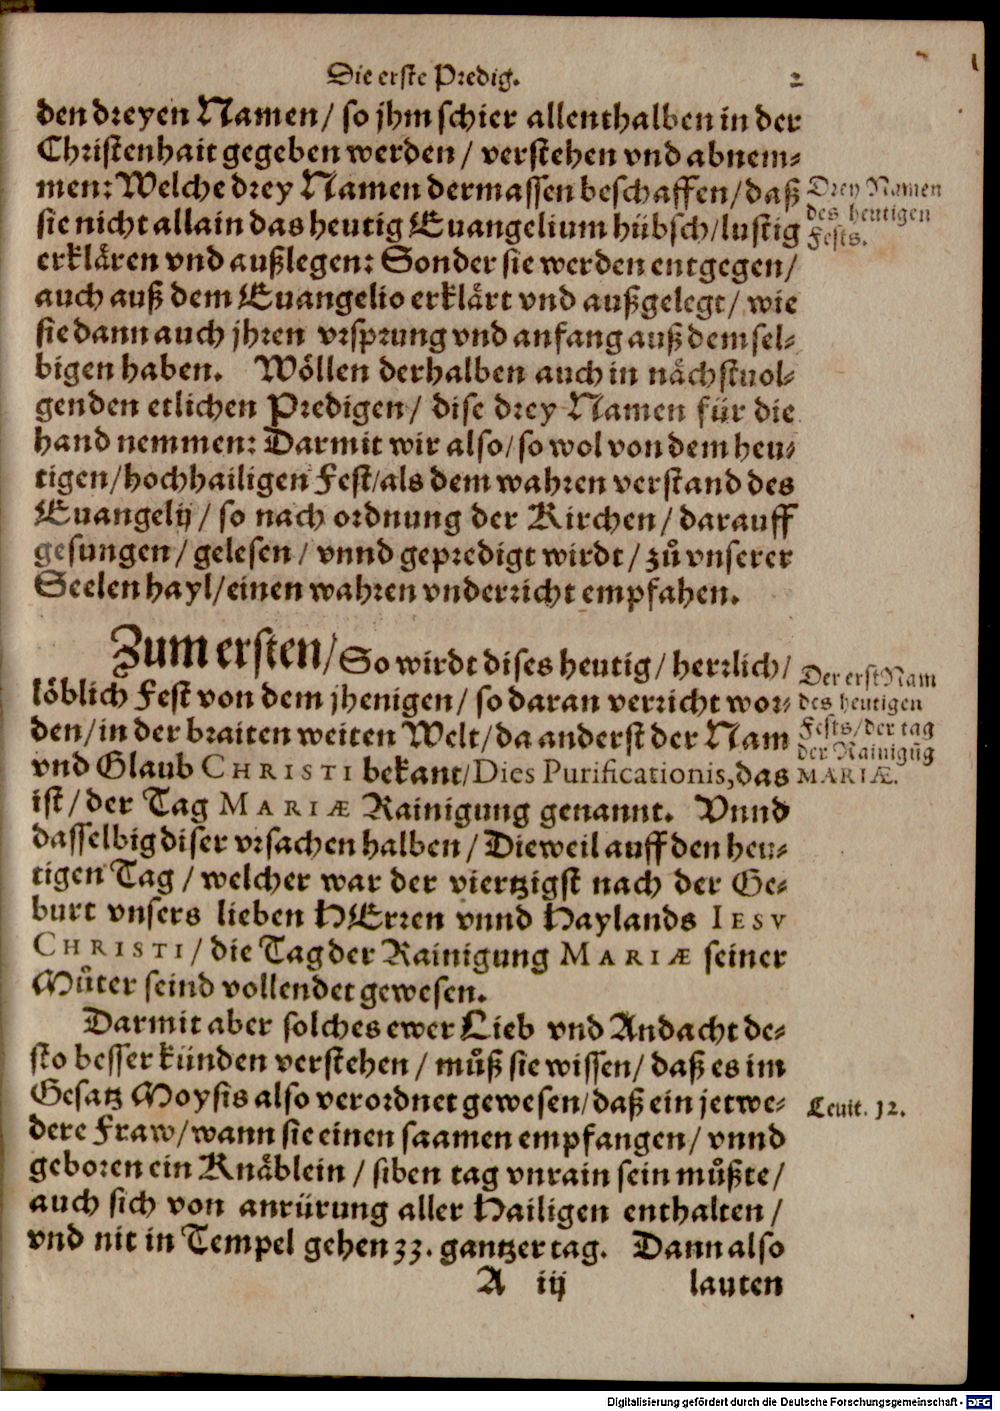 Die erste Predig. 2
den dreyen Namen / so jhm schier allenthalben in der
Christenhait gegeben werden / verstehen vnd abnem-
men: Welche drey Namen dermassen beschaffen / daß
sie nicht allain das heutig Euangelium hübsch / lustig
erklären vnd außlegen: Sonder sie werden entgegen /
auch auß dem Euangelio erklärt vnd außgelegt / wie
sie dann auch jhren vrsprung vnd anfang auß dem sel-
bigen haben. Wöllen derhalben auch in nächstuol-
genden etlichen Predigen / dise drey Namen für die
hand nemmen: Darmit wir also / so wol von dem heu-
tigen / hochhailigen Fest / als dem wahren verstand des
Euangelij / so nach ordnung der Kirchen / darauff
gesungen / gelesen / vnnd gepredigt wirdt / zů vnserer
Seelen hayl / einen wahren vnderricht empfahen.
Drey Namen
des heutigen
Fests.
Zum ersten / So wirdt dises heutig / herrlich /
löblich Fest von dem jhenigen / so daran verricht wor-
den / in der braiten weiten Welt / da anderst der Nam
vnd Glaub CHRISTI bekant / Dies Purificationis, das
ist / der Tag MARIÆ Rainigung genannt. Vnnd
dasselbig diser vrsachen halben / Dieweil auff den heu-
tigen Tag / welcher war der viertzigst nach der Ge-
burt vnsers lieben HErren vnnd Haylands IESV
CHRISTI / die Tag der Rainigung MARIÆ seiner
Můter seind vollendet gewesen.
Der erst Nam
des heutigen
Fests / der tag
der Rainigũg
MARIÆ.
Darmit aber solches ewer Lieb vnd Andacht de-
sto besser künden verstehen / můß sie wissen / daß es im
Gesatz Moysis also verordnet gewesen / daß ein jetwe-
dere Fraw / wann sie einen saamen empfangen / vnnd
geboren ein Knäblein / siben tag vnrain sein můßte /
auch sich von anrürung aller Hailigen enthalten /
vnd nit in Tempel gehen 33. gantzer tag. Dann also
Leuit. 12.
A iij lauten
Digitalisierung gefördert durch die Deutsche Forschungsgemeinschaft - DFG